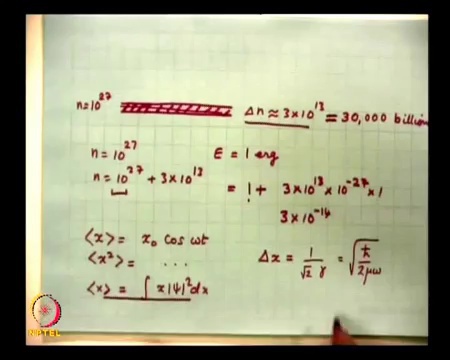 n=10^27 Δn ≈ 3×10^13 = 30,000 billion
n = 10^27 E = 1 erg
n = 10^27 + 3×10^13 = 1 + 3×10^13 × 10^-27 × 1
3×10^-14
<x> = x₀ cos ωt
<x²> = ... Δx = 1/(√2 γ) = √(ħ/2μω)
<x> = ∫ x|ψ|² dx
NPTEL